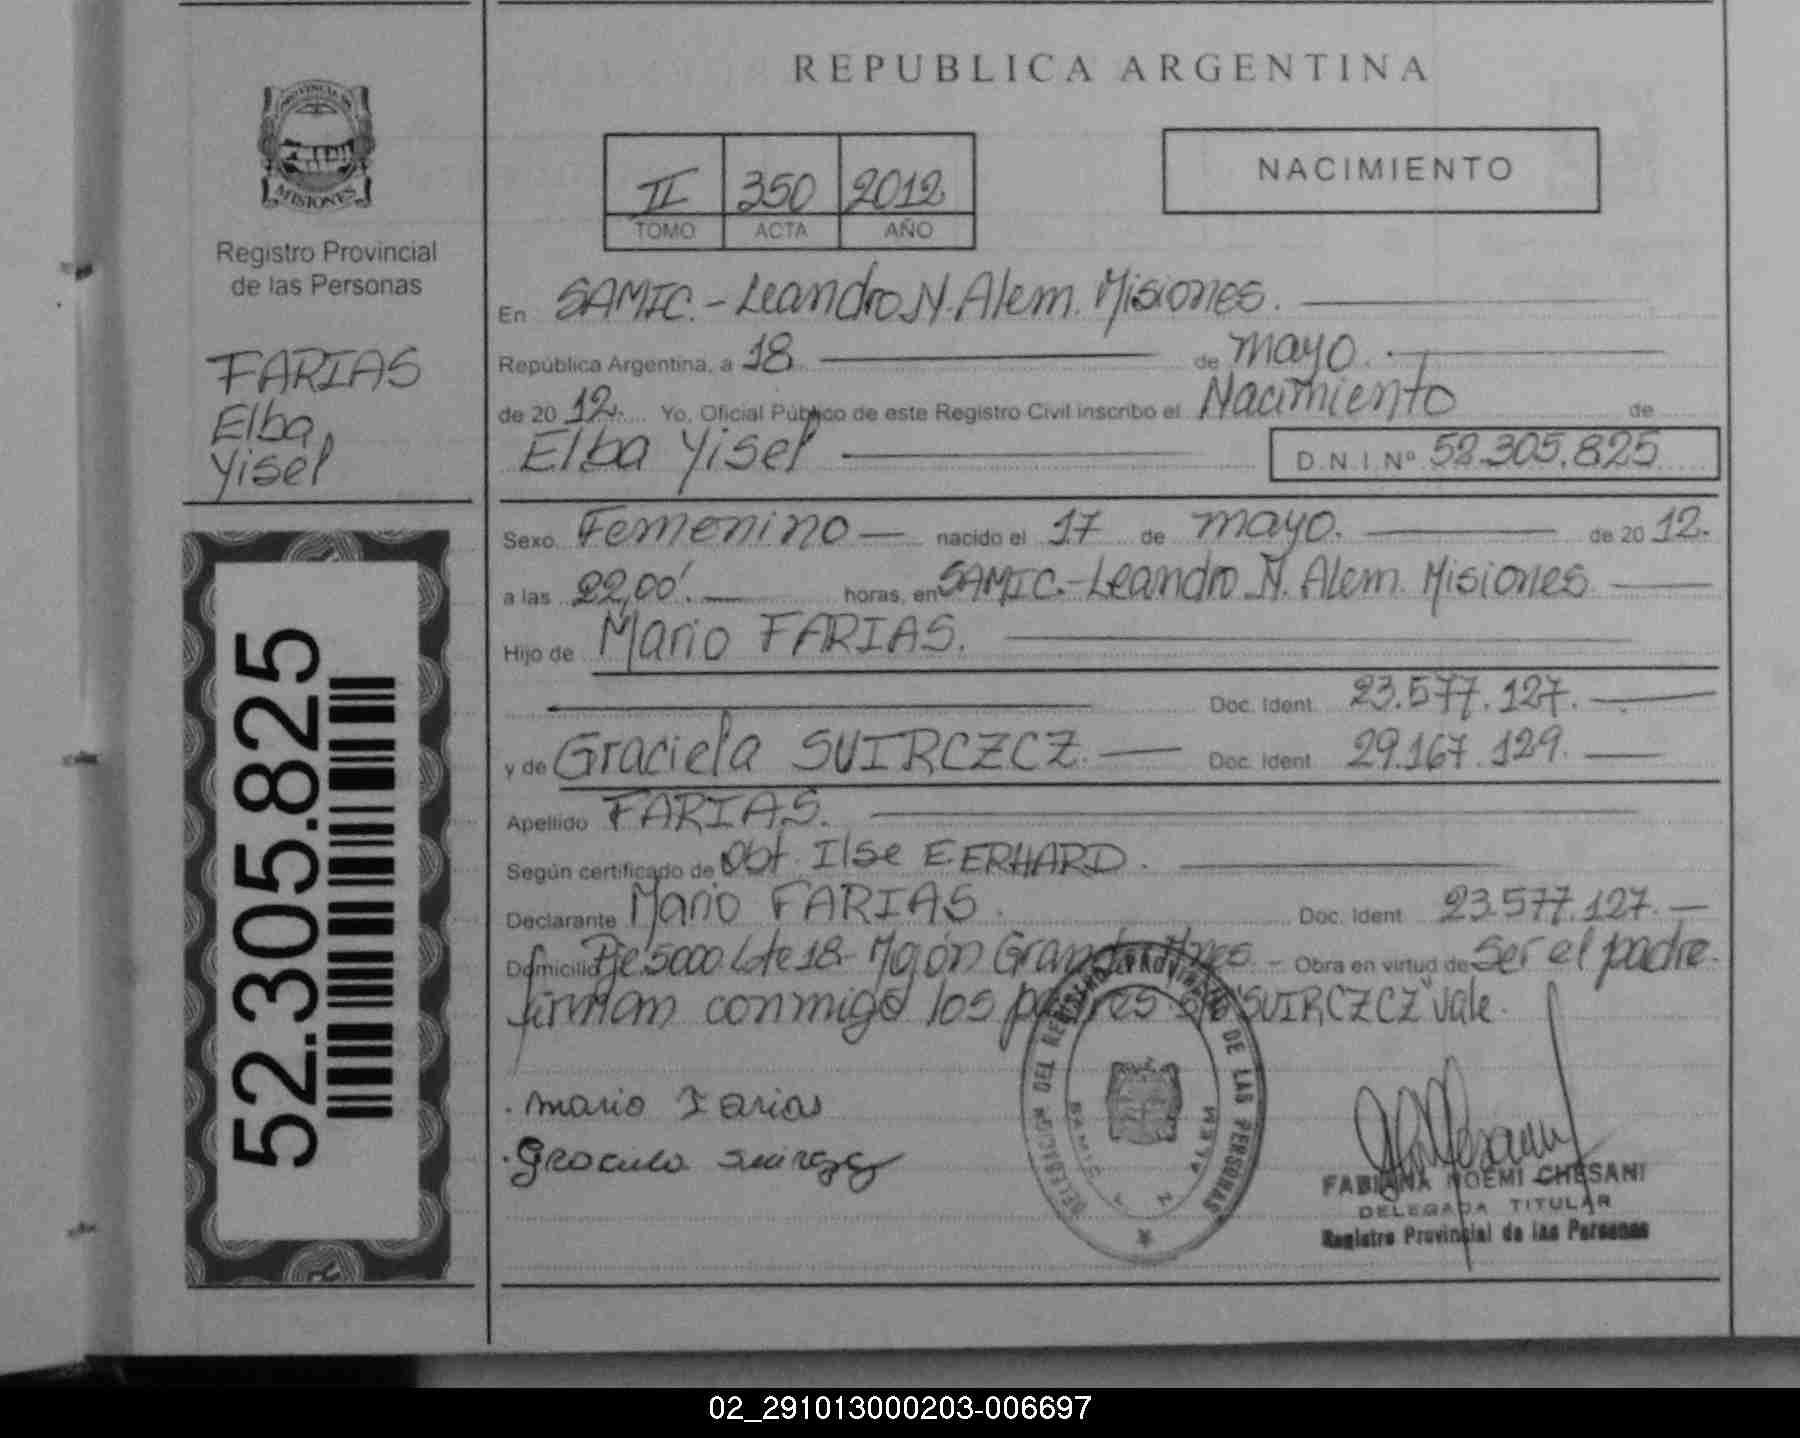 REPUBLICA ARGENTINA
PROVINCIA DE
MISIONES
Registro Provincial
de las Personas
FARIAS
Elba
Yisel
52.305.825
II 350 2012
TOMO ACTA AÑO
NACIMIENTO
En SAMIC.- Leandro N. Alem. Misiones.
República Argentina, a 18 de mayo.
de 20 12. Yo, Oficial Público de este Registro Civil inscribo el Nacimiento de
Elba Yisel D.N.I. Nº 52.305.825
Sexo Femenino nacido el 17 de mayo. de 20 12.
a las 22,00'. horas, en SAMIC.- Leandro N. Alem. Misiones
Hijo de Mario FARIAS.
Doc. Ident. 23.577.127.
y de Graciela SVIRCZCZ. Doc. Ident. 29.167.129.
Apellido FARIAS.
Según certificado de Obt. Ilse E. ERHARD.
Declarante Mario FARIAS. Doc. Ident. 23.577.127.
Domicilio Pje 5000 Lote 18- Mojón Grande - Obra en virtud de Ser el padre.
firman conmigo los padres "SVIRCZCZ" vale.
Mario Farias
DELEGACION DEL REGISTRO PROVINCIAL DE LAS PERSONAS
SAMIC N ALEM
FABIANA NOEMI CHESANI
DELEGADA TITULAR
Registro Provincial de las Personas
02_291013000203-006697